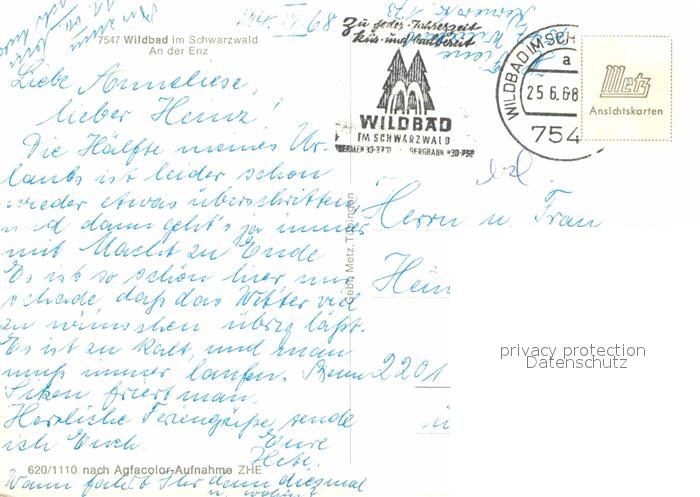 7547 Wildbad im Schwarzwald
An der Enz
68
Zu jeder Jahreszeit
kur- und badbereit
WILDBAD
IM SCHWARZWALD
BERGBAHN
WILDBAD IM SCH
a
25.6.68
754
Metz
Ansichtskarten
Liebe Anneliese,
lieber Heinz!
Die Hälfte meines Ur-
laubs ist leider schon
wieder etwas überschritten,
und dann geht's ja immer
mit Macht zu Ende
Es ist so schön hier, nur
schade, daß das Wetter viel
zu wünschen übrig läßt.
Es ist zu kalt, und man
muß immer laufen. Beim
Sitzen friert man.
Herzliche Feriengrüße sende
ich Euch. Eure
Wann fahrt Ihr denn diesmal
u.
Gebr. Metz, Tübingen
Herrn u. Frau
Hein
2201
privacy protection
Datenschutz
620/1110 nach Agfacolor-Aufnahme ZHE